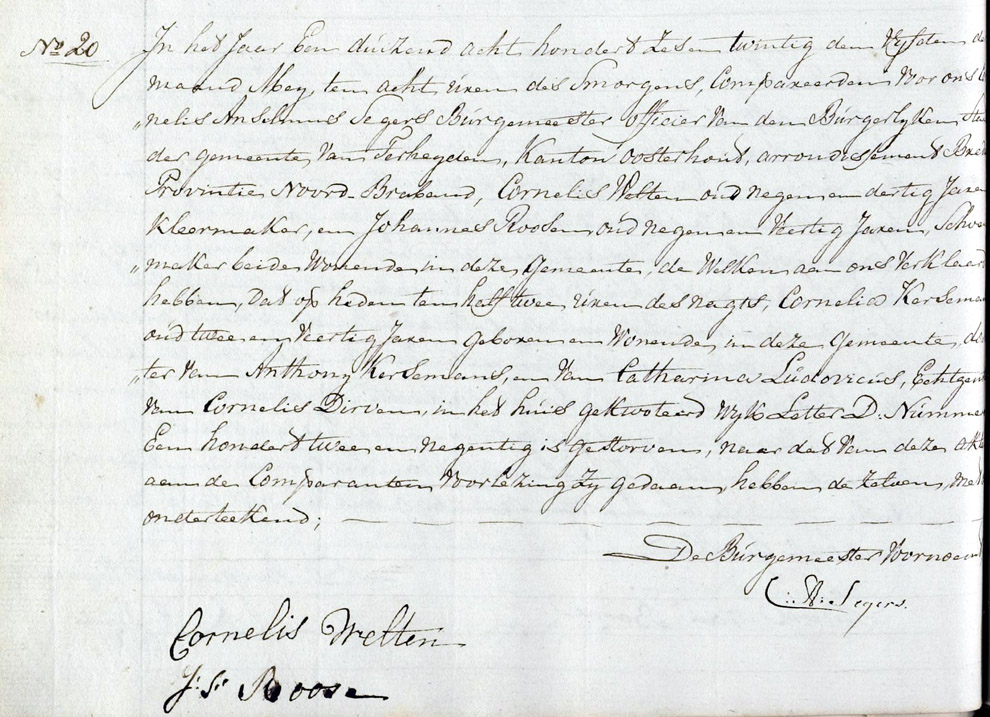 No 20
In het Jaar Een duizend acht hondert Zes en twintig den Vyfden de
maand Mey, ten acht uren des Smorgens, Compareerden Voor ons
„nelis Anselmus Segers Bürgemeester officier Van den Bürgerlyken
der gemeente, Van Terheyden, Kanton oosterhout, arrondissement
Provintie Noord-Braband, Cornelis Welten oud negen en dertig Jaren
Kleermaker, en Johannes Roosen, oud negen en Veertig Jaren, Schoe
„maker beide Wonende in deze Gemeente, de Welken aan ons Verklaard
hebben, Dat op heden ten half twee uren des nagts, Cornelia Kerseman
oud twee en Veertig Jaren geboren en Wonende, in deze Gemeente,
„ter Van Anthony Kersemans, en Van Catharina Ludovicus, Echtgen
Van Cornelis Dirven, in het huis gekwoteerd Wyk Letter D. Nummer
Een hondert twee en negentig is gestorven, naar dat Van deze akt
aan de Comparanten Voorlezing Zy gedaan, hebben de Zelven, met
onderteekend;
De Bürgemeester Voornoemd
C: A: Segers.
Cornelis Welten
Roosen